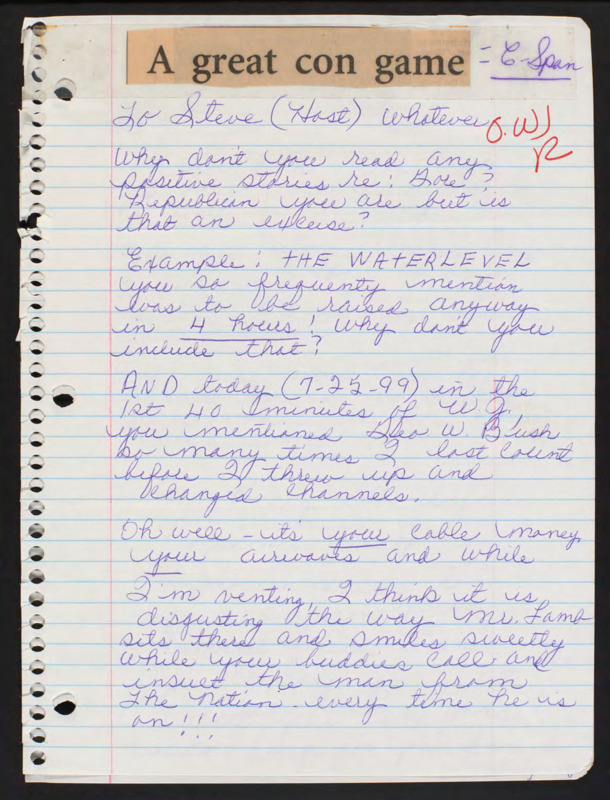 A great con game = C-Span
To Steve (Host) Whatever
Why don't you read any
positive stories re: Gore?
Republican you are but is
that an excuse?
Example: THE WATERLEVEL
you so frequently mention
was to be raised anyway
in 4 hours! Why don't you
include that?
AND today (7-25-99) in the
1st 40 minutes of W.J.
you mentioned Geo W. Bush
so many times I lost count
before I threw up and
changed channels.
Oh well - it's your cable money
your airwaves and while
I'm venting, I think it is
disgusting the way Mr. Lamb
sits there and smiles sweetly
while your buddies call and
insult the man from
The Nation - every time he is
on!!!